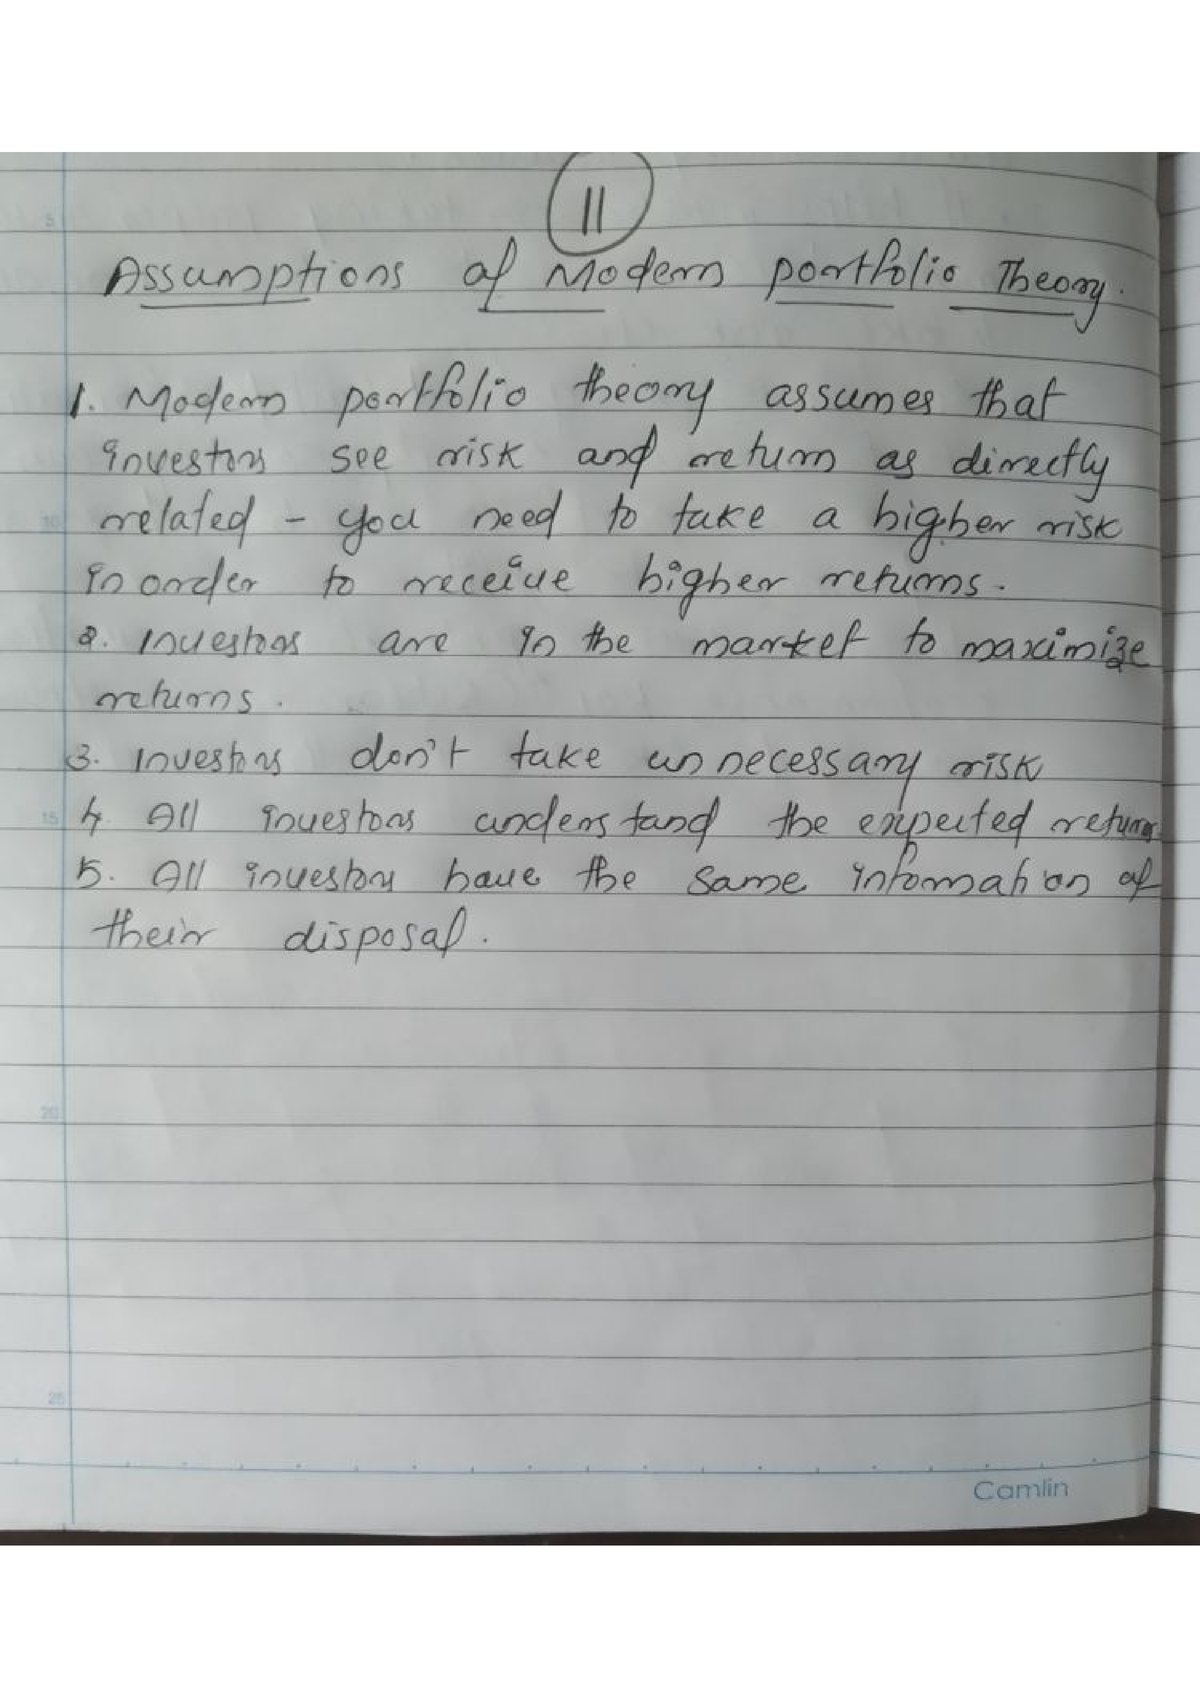 11
Assumptions of Modern portfolio Theory.
1. Modern portfolio theory assumes that
investors see risk and return as directly
related - you need to take a higher risk
in order to receive higher returns.
2. Investors are in the market to maximize
returns.
3. Investors don't take unnecessary risk
4. All investors understand the expected returns
5. All investors have the same information at
their disposal.
5
10
15
20
25
Camlin